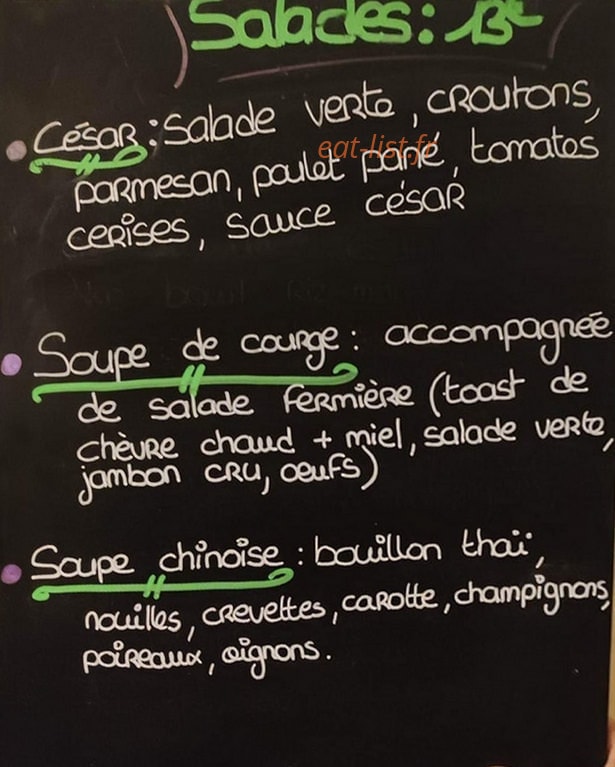 Salades: 13€
César: Salade verte, croutons,
eat-list.fr
parmesan, poulet pané, tomates
cerises, sauce césar
Soupe de courge: accompagnée
de salade fermière (toast de
chèvre chaud + miel, salade verte,
jambon cru, oeufs)
Soupe chinoise: bouillon thaï,
nouilles, crevettes, carotte, champignons,
poireaux, oignons.